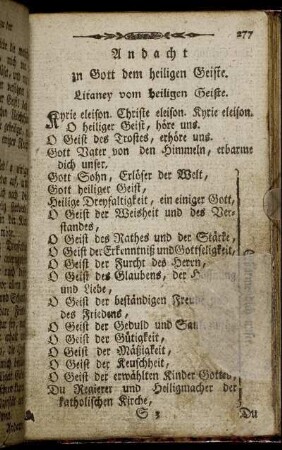 277
Andacht
zu Gott dem heiligen Geiste.
Litaney vom heiligen Geiste.
Kyrie eleison. Christe eleison. Kyrie eleison.
O heiliger Geist, höre uns.
O Geist des Trostes, erhöre uns.
Gott Vater von den Himmeln, erbarme
dich unser.
Gott Sohn, Erlöser der Welt,
Gott heiliger Geist,
Heilige Dreyfaltigkeit, ein einiger Gott,
O Geist der Weisheit und des Ver-
standes,
O Geist des Rathes und der Stärke,
O Geist der Erkenntniß und Gottseligkeit,
O Geist der Furcht des Herrn,
O Geist des Glaubens, der
und Liebe,
O Geist der beständigen
des Friedens,
O Geist der Geduld und
O Geist der Gütigkeit,
O Geist der Mäßigkeit,
O Geist der Keuschheit,
O Geist der erwählten Kinder Gottes,
Du Regierer und Heiligmacher der
katholischen Kirche,
S 3
Du